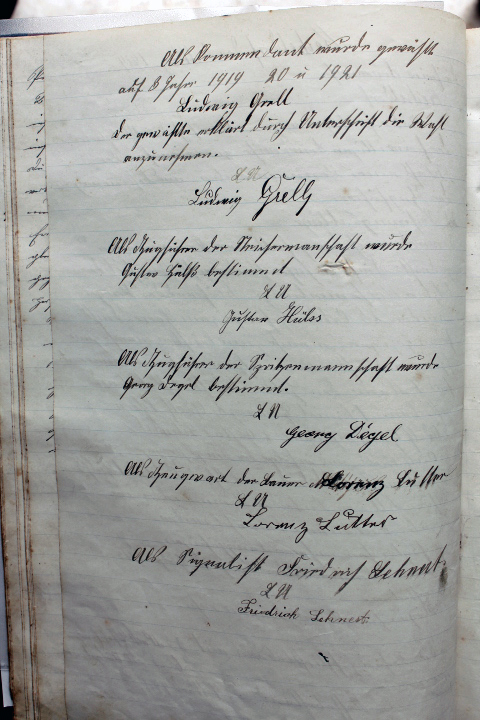 Als Kommandant wurde gewählt
auf 3 Jahre 1919 20 u 1921
Ludwig Grell
Der gewählte erklärt durch Unterschrift die Wahl
anzunehmen.
Ludwig Grell
Als Zugführer der Steigermannschaft wurde
Gustav Hülß bestimmt
Gustav Hülss
Als Zugführer der Spritzenmannschaft wurde
Georg Degel bestimmt.
Georg Degel
Als Zeugwart der Bauer Lorenz Lutter
Lorenz Lutter
Als Signalist Friedrich Lehnert
Friedrich Lehnert